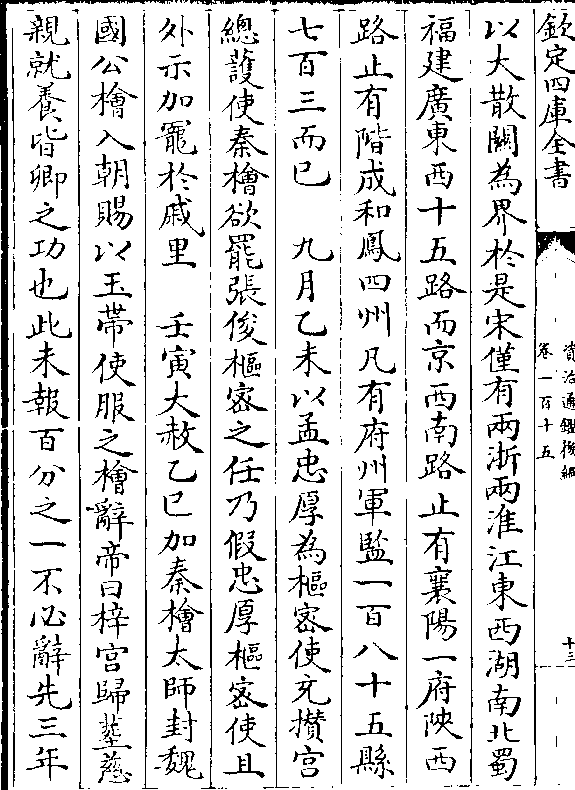 欽定四庫全書
資治通鑑後編
卷一百十五
十三
以大散關為界於是宋僅有兩浙兩淮江東西湖南北蜀
福建廣東西十五路而京西南路止有襄陽一府陜西
路止有階成和鳳四州凡有府州軍監一百八十五縣
七百三而已 九月乙未以孟忠厚為樞密使充攢宮
總護使秦檜欲罷張俊樞密之任乃假忠厚樞密使且
外示加寵於戚里 壬寅大赦乙巳加秦檜太師封魏
國公檜入朝賜以玉帶使服之檜辭帝曰梓宮歸塟慈
親就養皆卿之功也此未報百分之一不必辭先三年